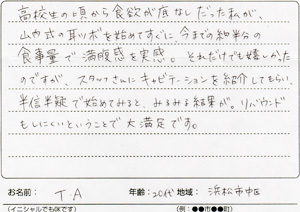 高校生の頃から食欲が底なしだった私が、
山内式の耳ツボを始めてすぐに今までの約半分の
食事量で満腹感を実感。それだけでも嬉しかった
のですが、スタッフさんにキャビテーションを紹介してもらい、
半信半疑で始めてみると、みるみる結果が。リバウンド
もしにくいということで大満足です。
お名前: T.A 年齢:20代 地域: 浜松市中区
(イニシャルでも区です) (例:●●市●●町)